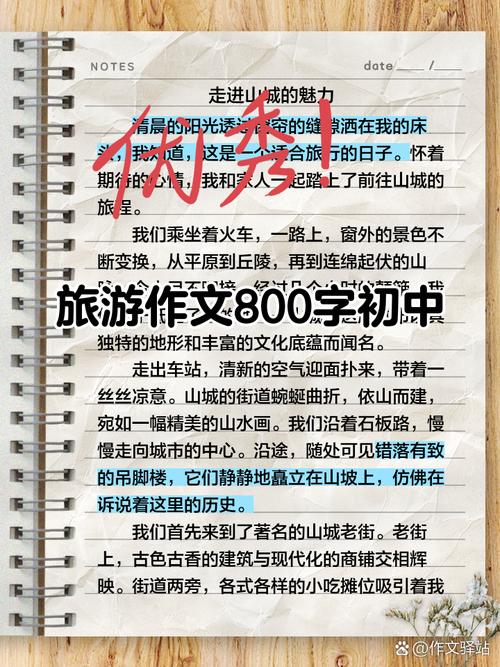 NOTES
date____/__
走进山城的魅力
优秀!
清晨的阳光透过窗帘的缝隙洒在我的床
头,我知道,这是一个适合旅行的日子。怀着
期待的心情,我和家人一起踏上了前往山城的
旅程。
我们乘坐着火车,一路上,窗外的景色不
断变换,从平原到丘陵,再到连绵起伏的山
旅游作文800字初中
独特的地形和丰富的文化底蕴而闻名。
走出车站,清新的空气迎面扑来,带着一
丝丝凉意。山城的街道蜿蜒曲折,依山而建,
宛如一幅精美的山水画。我们沿着石板路,慢
慢走向城市的中心。沿途,随处可见错落有致
的吊脚楼,它们静静地矗立在山坡上,仿佛在
诉说着这里的历史。
我们首先来到了著名的山城老街。老街
上,古色古香的建筑与现代化的商铺交相辉
映。街道两旁,各式各样的小吃摊位吸引着我
@作文驿站